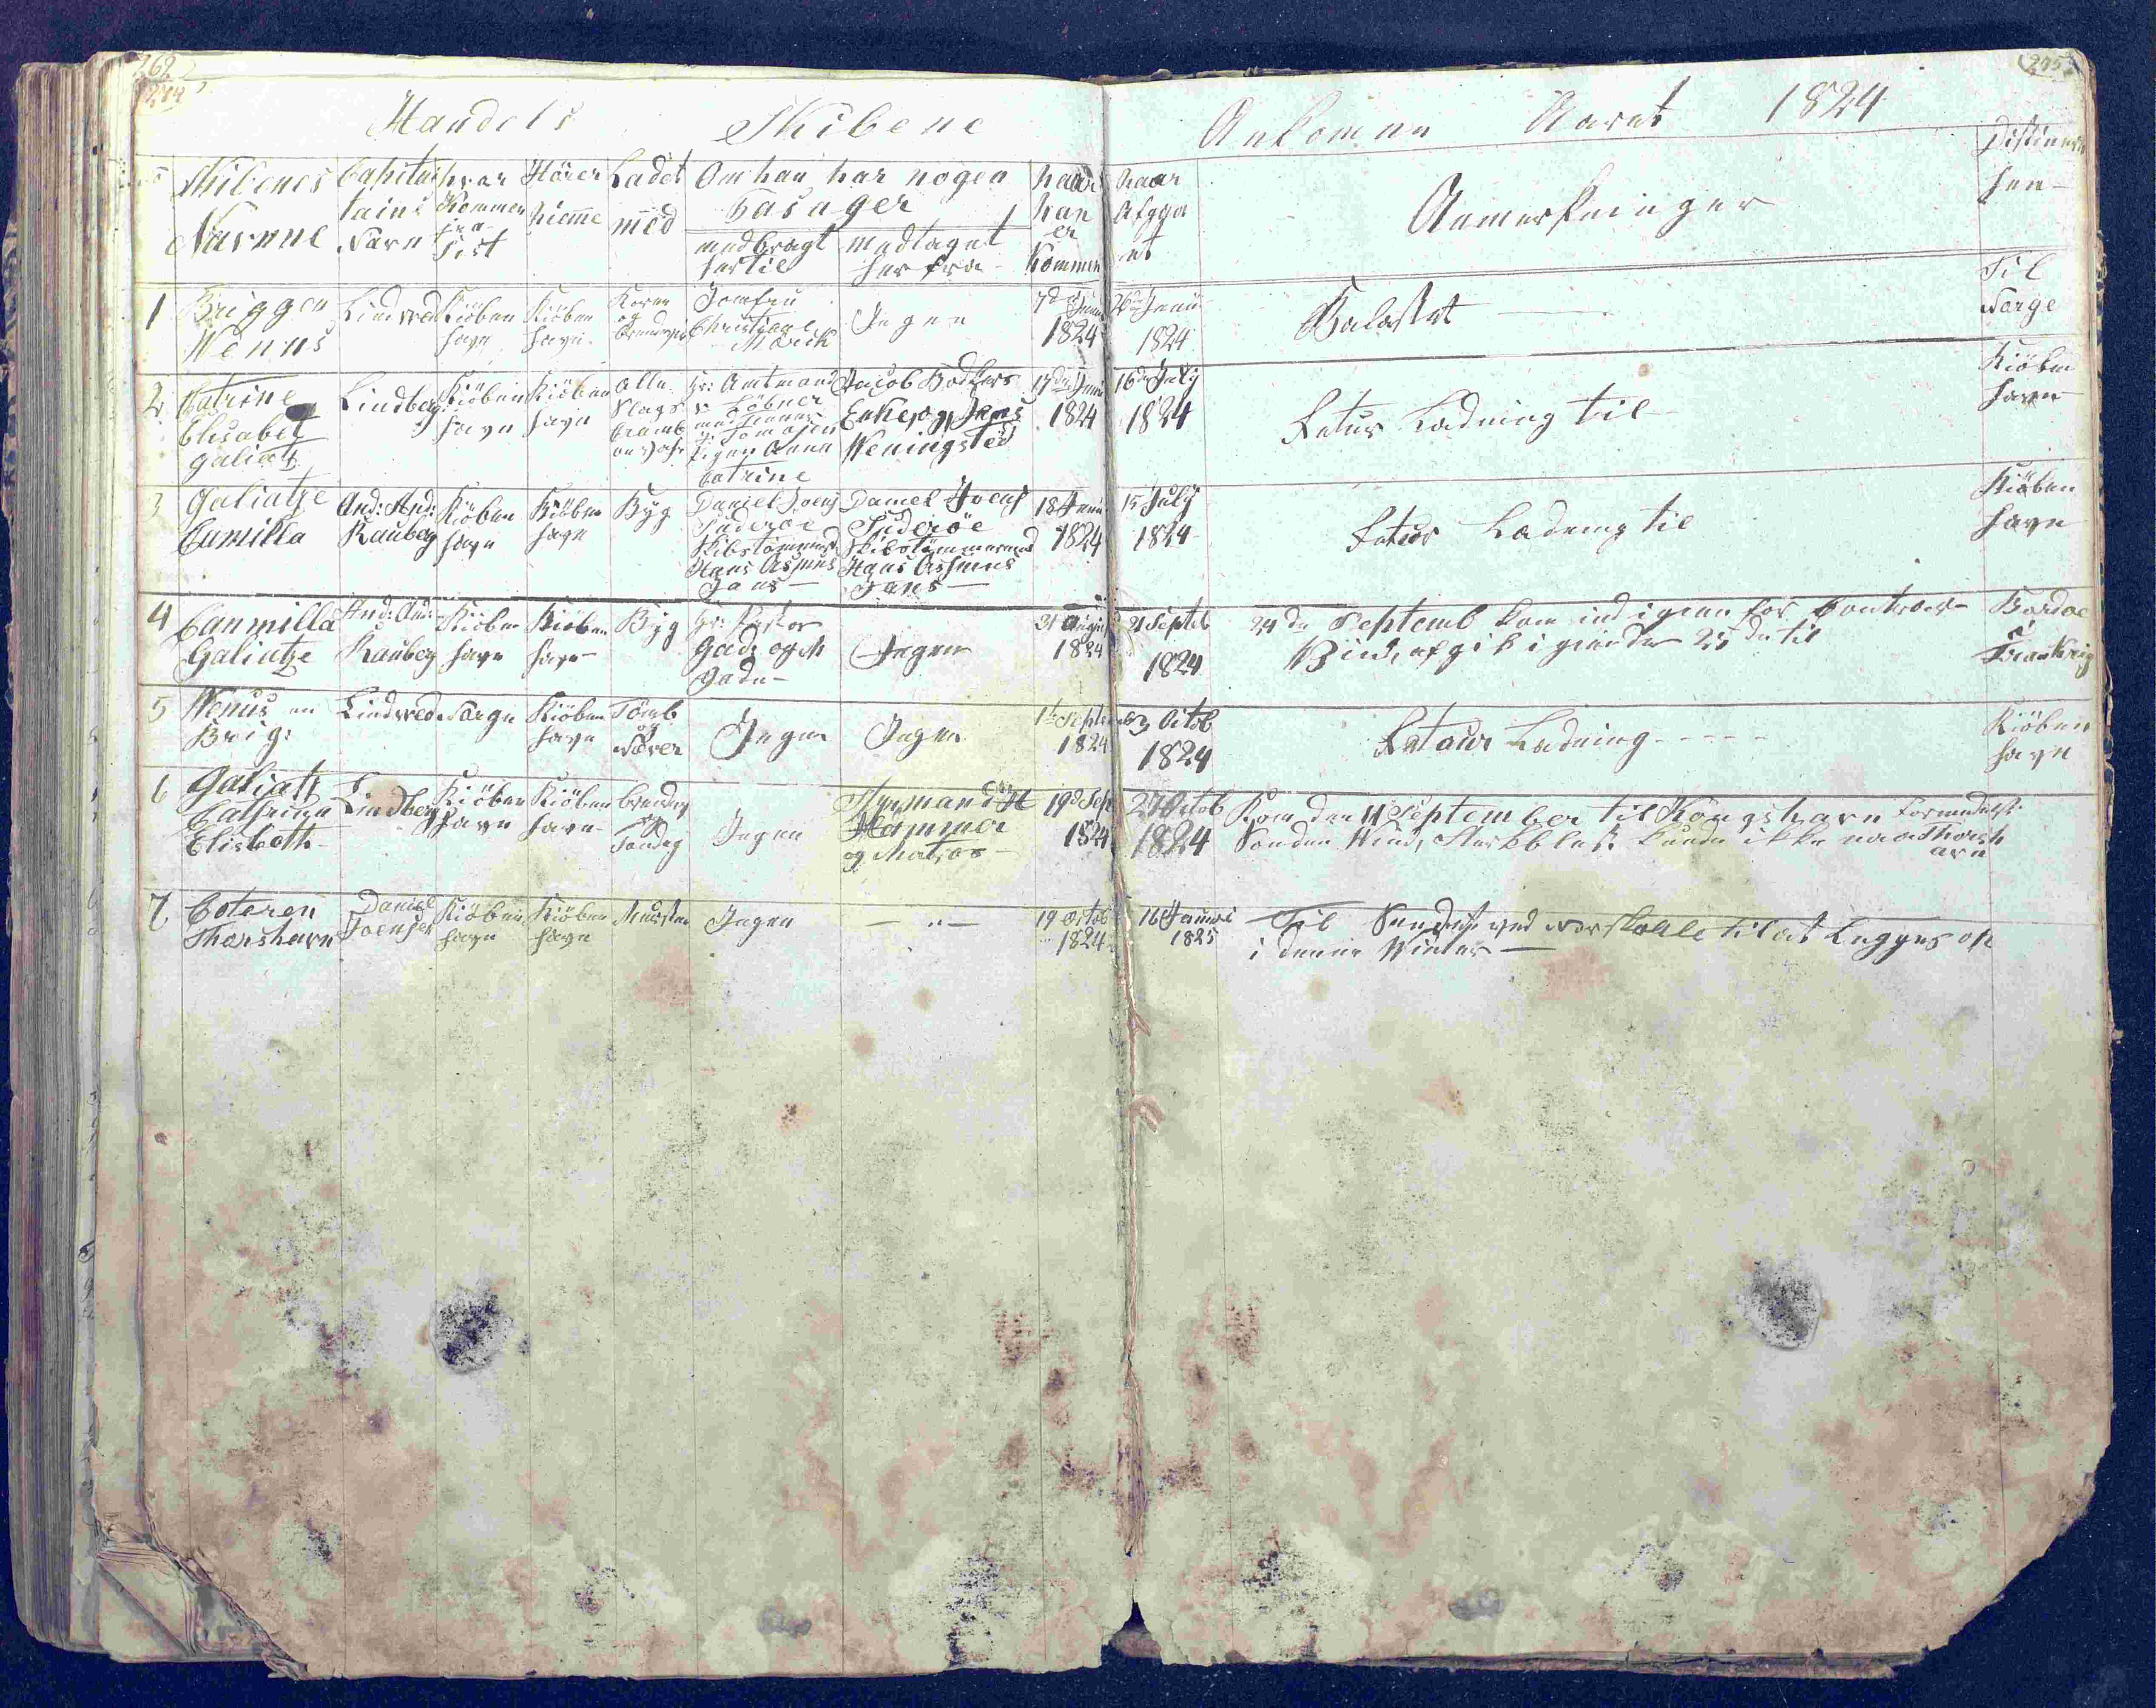 262
274
275
Handels Skibene Ankomne Aaret 1824
Skibenes Navnne
Capitaine Navn
hvor Kommen fra sist
Hörer hieme
Ladet med
Om han har nogen Pasager
medbragt hertil
medtaget herfra
naar han er kommen
naar Afgaaet
Anmerkninger
hen
1
Briggen
Wenus
Lindved
Kiöben
havn
Kiöben
havn
Korn
og
Jomfru
Christiane
Mörck
Ingen
7de Juni
1824
26de Junii
1824
Balastet
Til
Norge
2
Catrine
Elisabet
galiat
Lindberg
Kiöben
havn
Kiöben
havn
alle
Slags
Hr: Amtmand
v: Löbner
Pigen Anna
Catrine
Jacob Bödkers
Enke, og Jens
Weningsted
17de Juni
1824
16de July
1824
Retur Ladning til
Kiöben
havn
3
Galiatze
Camilla
And: And:
Rauberg
Kiöben
havn
Kiöben
havn
Byg
Daniel Joens
Suderöe
Skibstömmermd
Hans Asmus
Jans
Daniel Joens
Suderöe
Skibstömmermand
Hans Assmus
Jans
18 Juni
1824
15 July
1824
Retur Ladning til
Kiöben
havn
4
Canmilla
Galiatze
And: And:
Rauberg
Kiöben
havn
Kiöben
havn
Byg
Hr: Pastor
Gad: og M
Gade
Ingen
21 August
1824
21 Septeb
1824
24de Septemb kom ind igien for Contraer
Vind, afgik igien den 25de til
Bordoe
i
Frankrig
5
Wenus en
Brig:
Lindved
Norge
Kiöben
havn
Tömb
og
Næver
Ingen
Ingen
Septem
1824
3 Octob
1824
Retour Ladning
Kiöben
havn
6
Galiatz
Cathrina
Elisbeth
Lindberg
Kiöben
havn
Kiöben
havn
og
Ingen
Styrmand H
Hammer
og Matros
19de Sep
1824
27 Octob
1824
Kom den 11 September til Kongshavn formedelst
Sonden Wind, Sterkblest kunde ikke naae Thorsh
avn
7
Coteren
Thorshavn
Daniel
Joensen
Kiöben
havn
Kiöben
havn
Ingen
19 Octob
1824
16 Januari
1825
Til Sundet ved Norskalle til at Legges op
i denne Winter